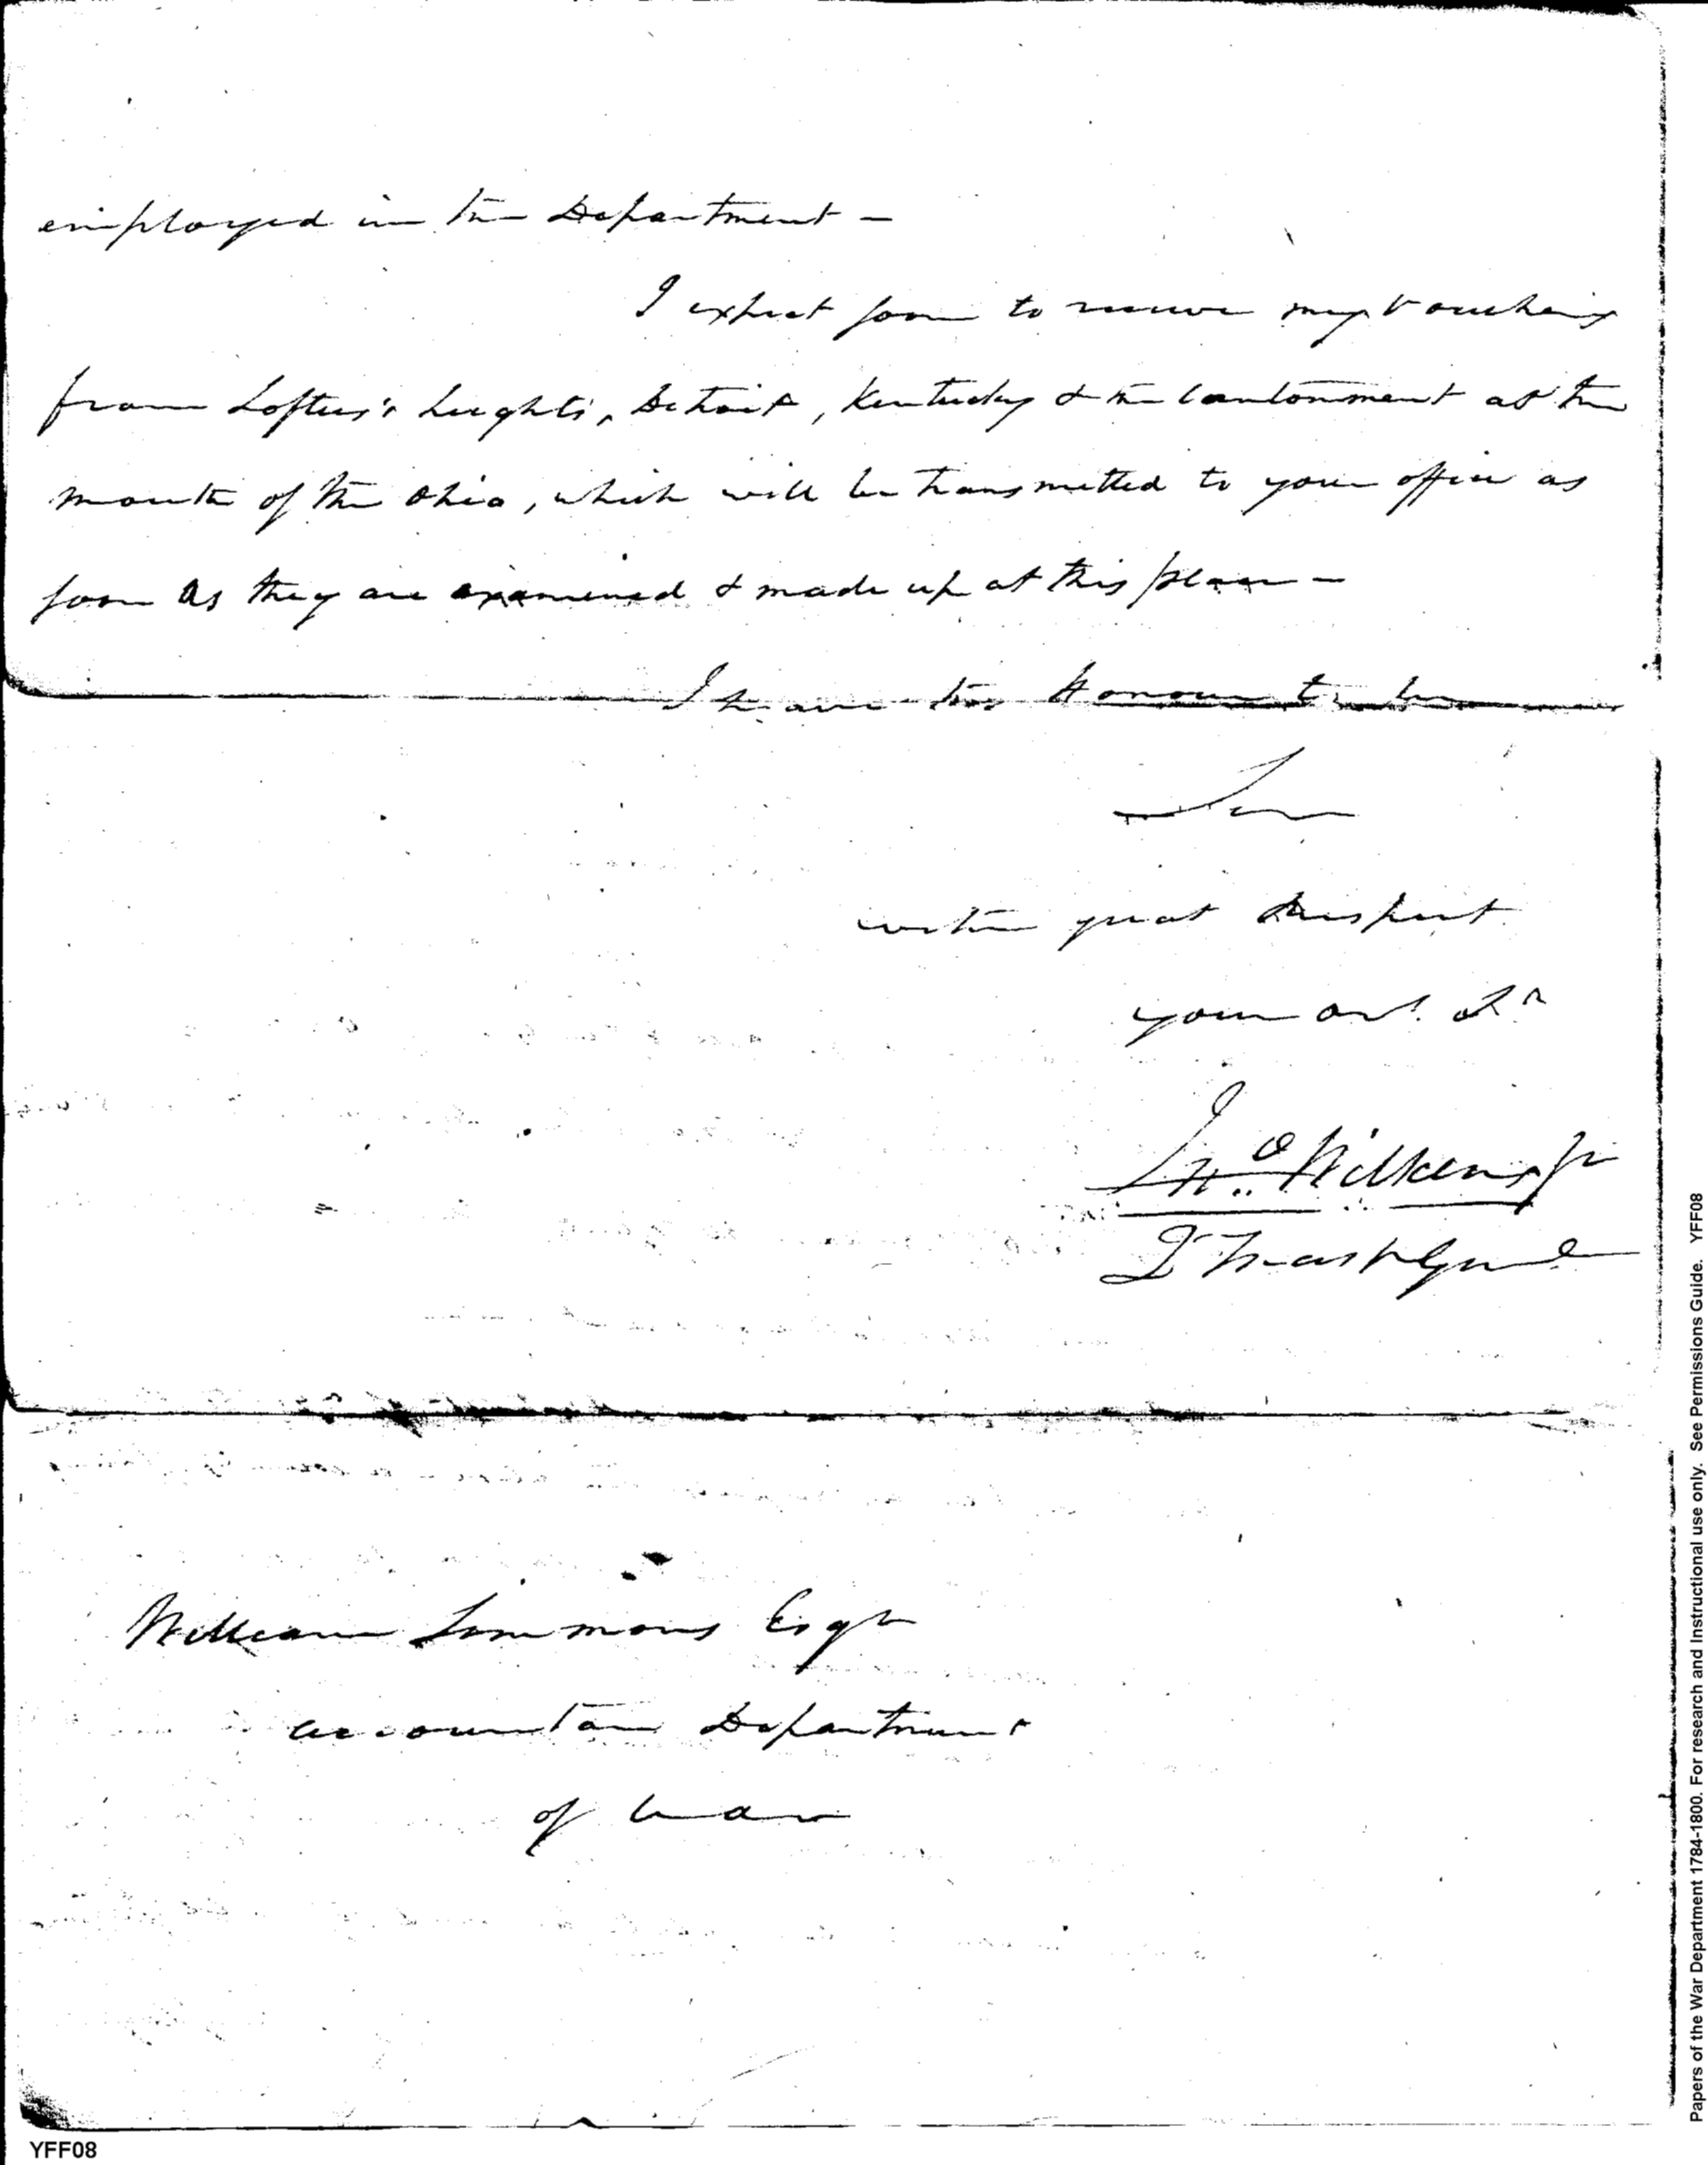 employed in the Department —
I expect soon to receive my Vouchers
from Loftus's heights, Detroit, Kentucky & the Cantonment at the
mouth of the Ohio, which will be transmitted to your office as
soon as they are examined & made up at this place —
I have the Honour to be
Sir
with great Respect
your ob.t S.r
Jn.o Wilkins Jr
Q.r Mast.r Gen.l
William Simmons Esqr
accountant Department
of War
YFF08
Papers of the War Department 1784-1800. For research and Instructional use only. See Permissions Guide. YFF08